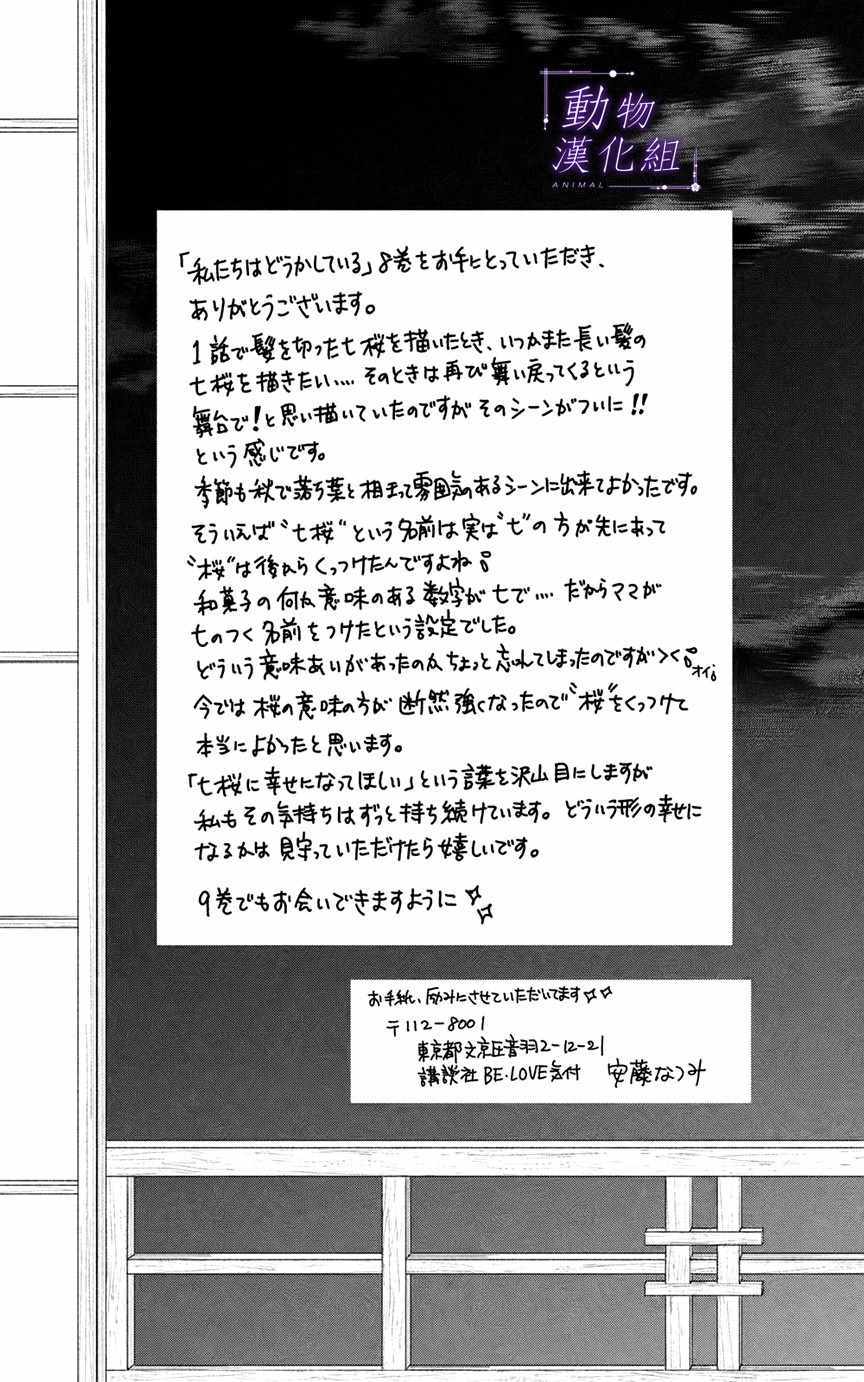 動物
漢化組
ANIMAL
「私たちはどうかしている」8巻をお手にとっていただき、
ありがとうございます。
1話で髪を切った七桜を描いたとき、いつかまた長い髪の
七桜を描きたい…. そのときは再び舞い戻ってくるという
舞台で!と思い描いていたのですがそのシーンがついに!!
という感じです。
季節も秋で落ち葉と相まって雰囲気のあるシーンに出来てよかったです。
そういえば〝七桜〟という名前は実は〝七〟の方が先にあって
〝桜〟は後からくっつけたんですよね
和菓子の何か意味のある数字が七で…. だからママが
七のつく名前をつけたという設定でした。
どういう意味あいがあったのかちょっと忘れてしまったのですが><オイ
今では桜の意味の方が断然強くなったので〝桜〟をくっつけて
本当によかったと思います。
「七桜に幸せになってほしい」という言葉を沢山目にしますが
私もその気持ちはずっと持ち続けています。どういう形の幸せに
なるかは見守っていただけたら嬉しいです。
9巻でもお会いできますように
お手紙、励みにさせていただいてます
〒112-8001
東京都文京区音羽2-12-21
講談社 BE・LOVE気付 安藤なつみ